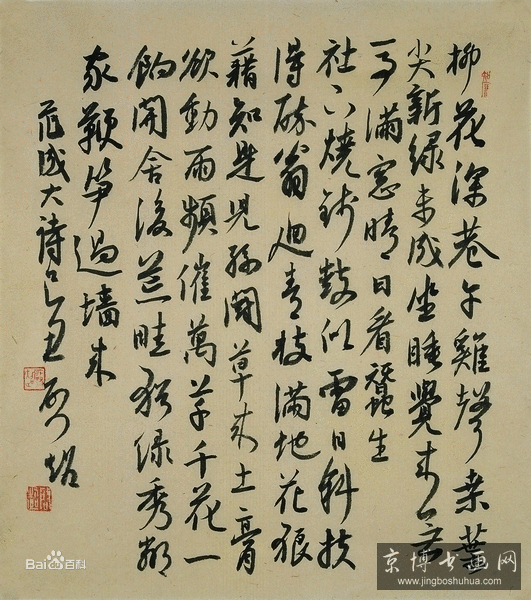 柳花深巷午雞聲桑葉
尖新綠未成坐睡覺來無一
事滿窓晴日看蠶生
社下燒錢鼓似雷日斜扶
得醉翁迴青枝滿地花狼
藉知是兒孫鬪草來土膏
欲動雨頻催萬草千花一
餉開舍後荒畦猶綠秀鄰
家鞭笋過墻來
范成大詩乙丑
Bai百科
京博书画网
www.jingboshuhua.com